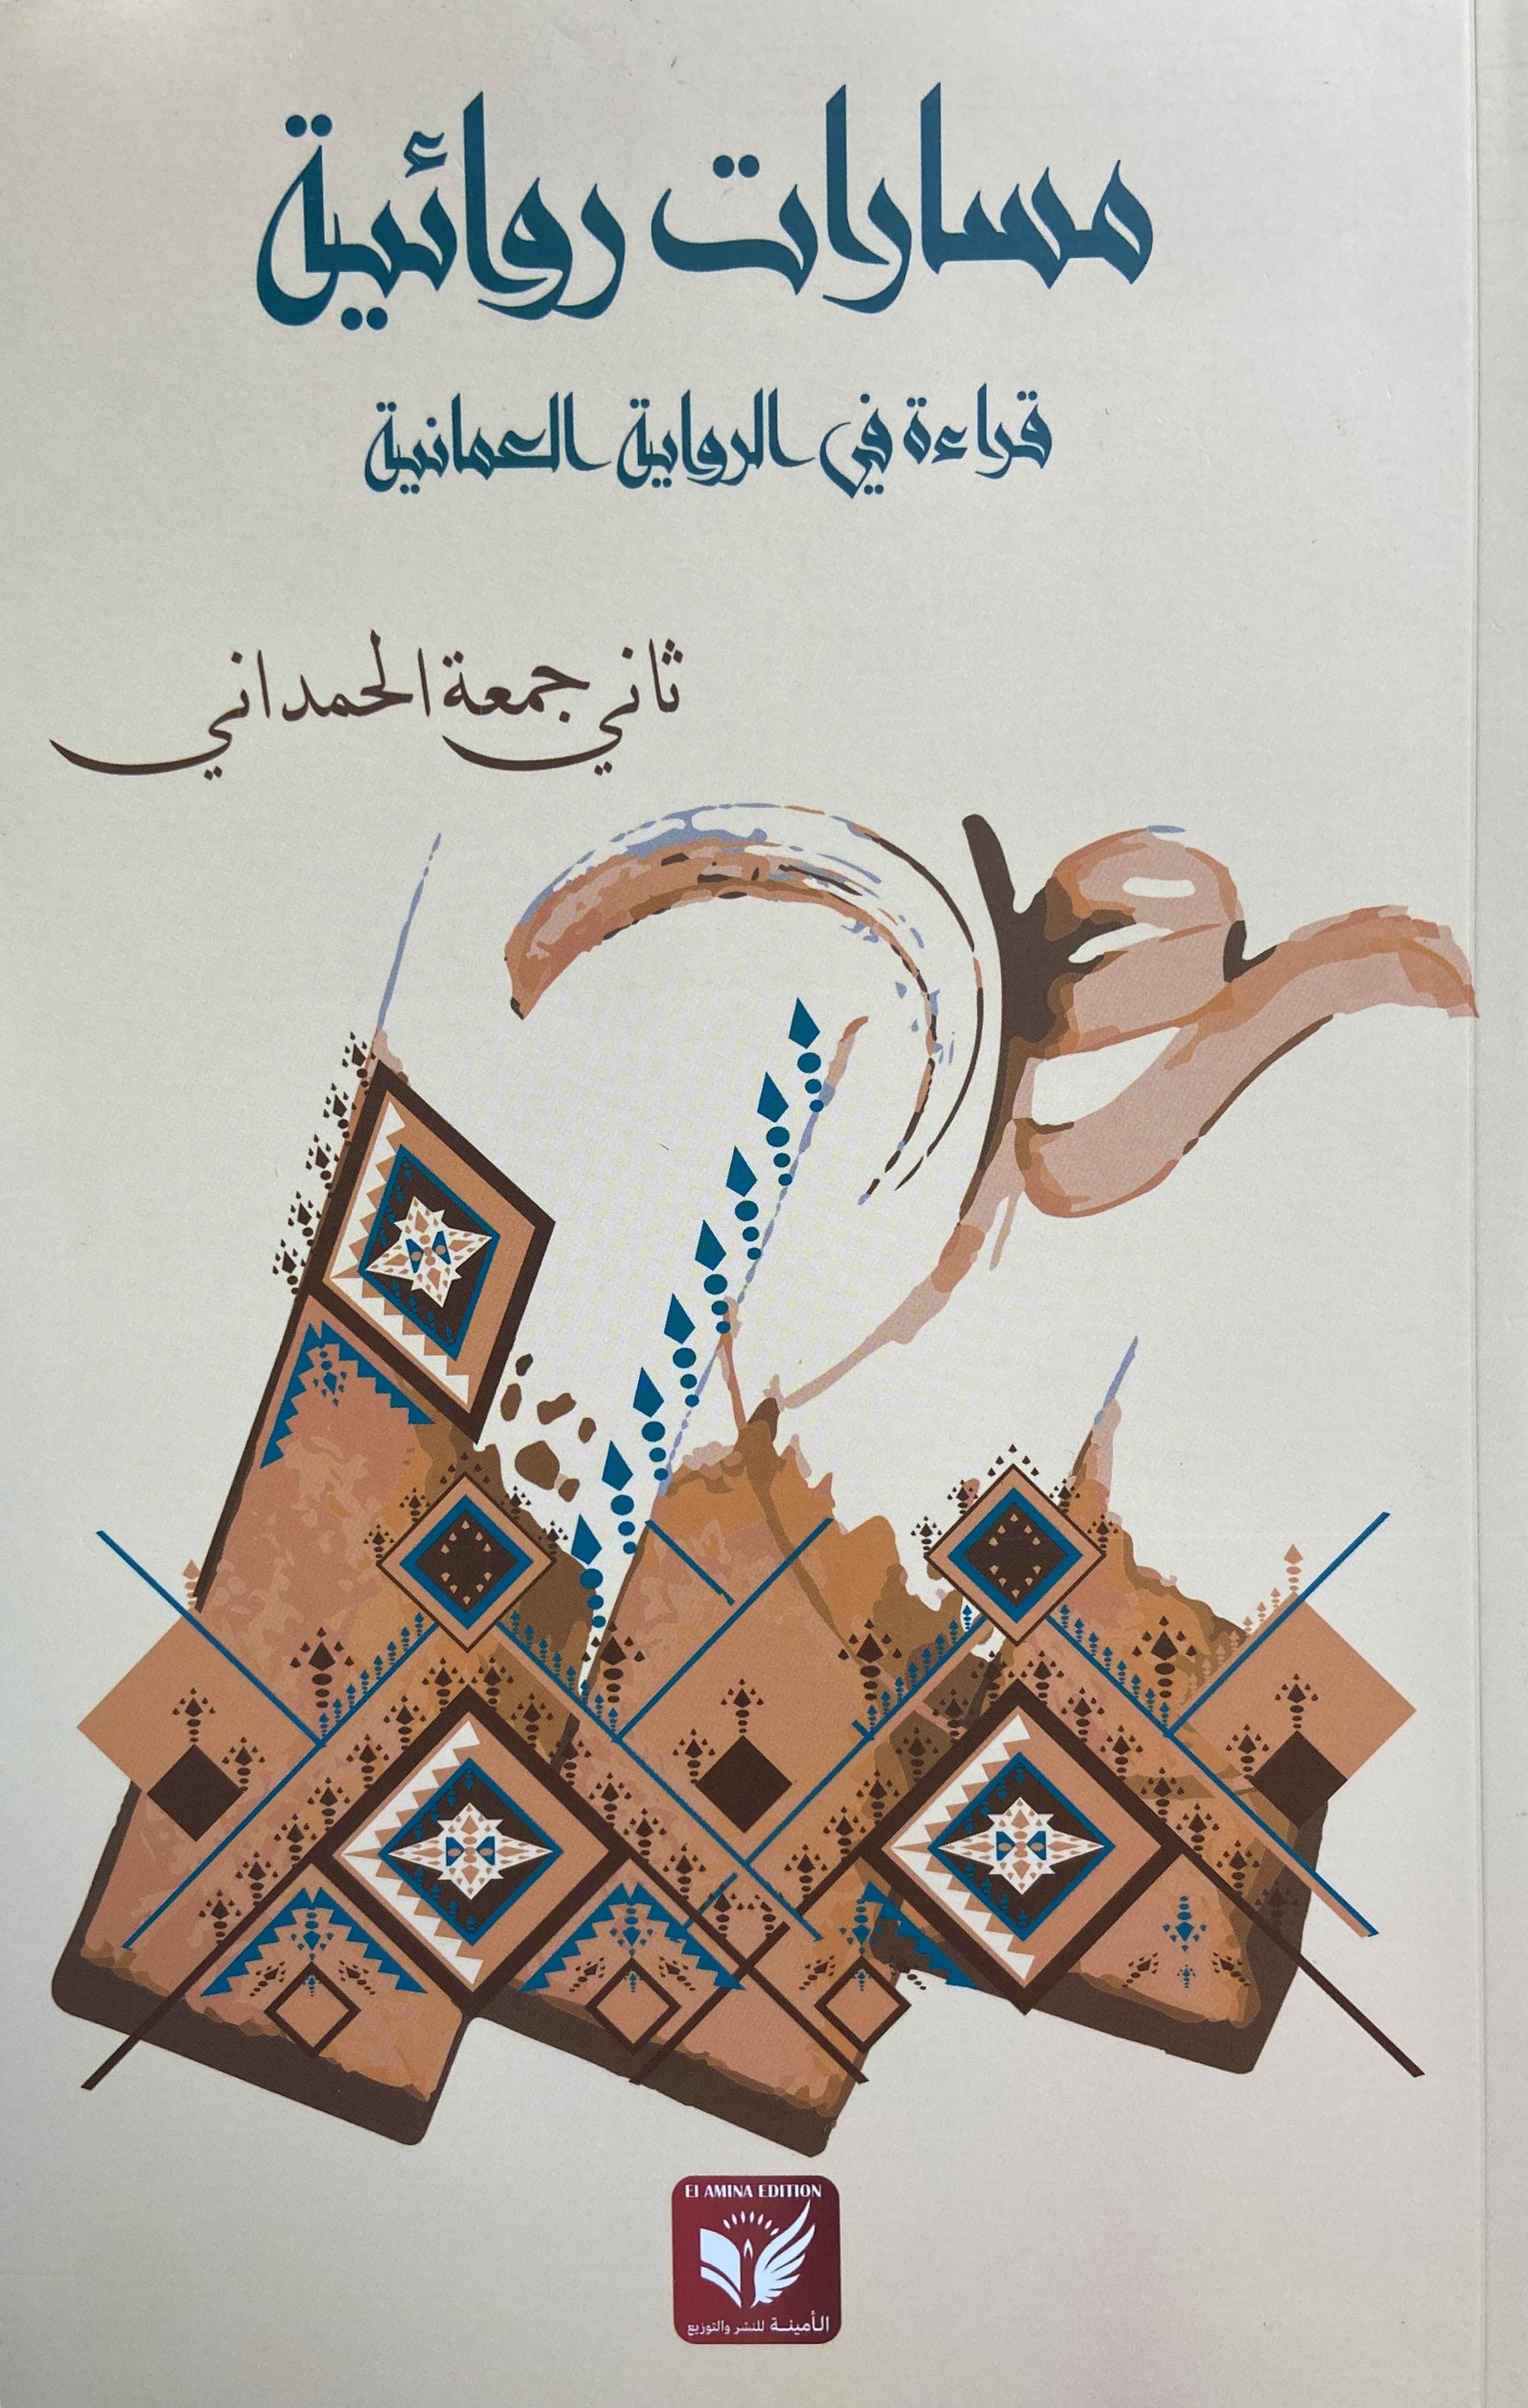 مسارات روائية
قراءة في الرواية العمانية
ثاني جمعة الحمداني
El AMINA EDITION
الأمينة للنشر والتوزيع